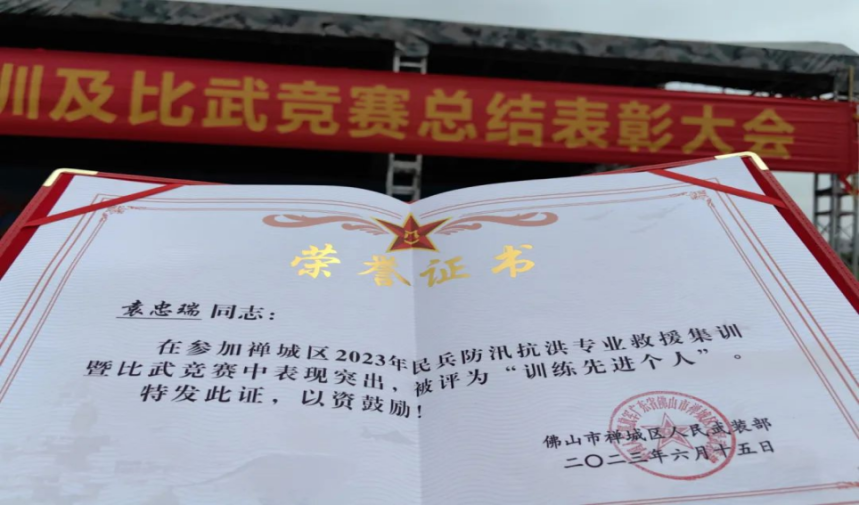 训及比武竞赛总结表彰大会
荣誉证书
袁忠瑞 同志：
在参加禅城区2023年民兵防汛抗洪专业救援集训
暨比武竞赛中表现突出，被评为“训练先进个人”。
特发此证，以资鼓励！
佛山市禅城区人民武装部
二〇二三年六月十五日